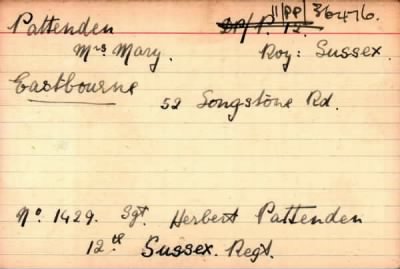 11/PP/36476.
Pattenden DP/P. 12.
Mrs Mary. Roy: Sussex.
Eastbourne
52 Longstone Rd.
No. 1429. Sgt. Herbert Pattenden
12th Sussex. Regt.